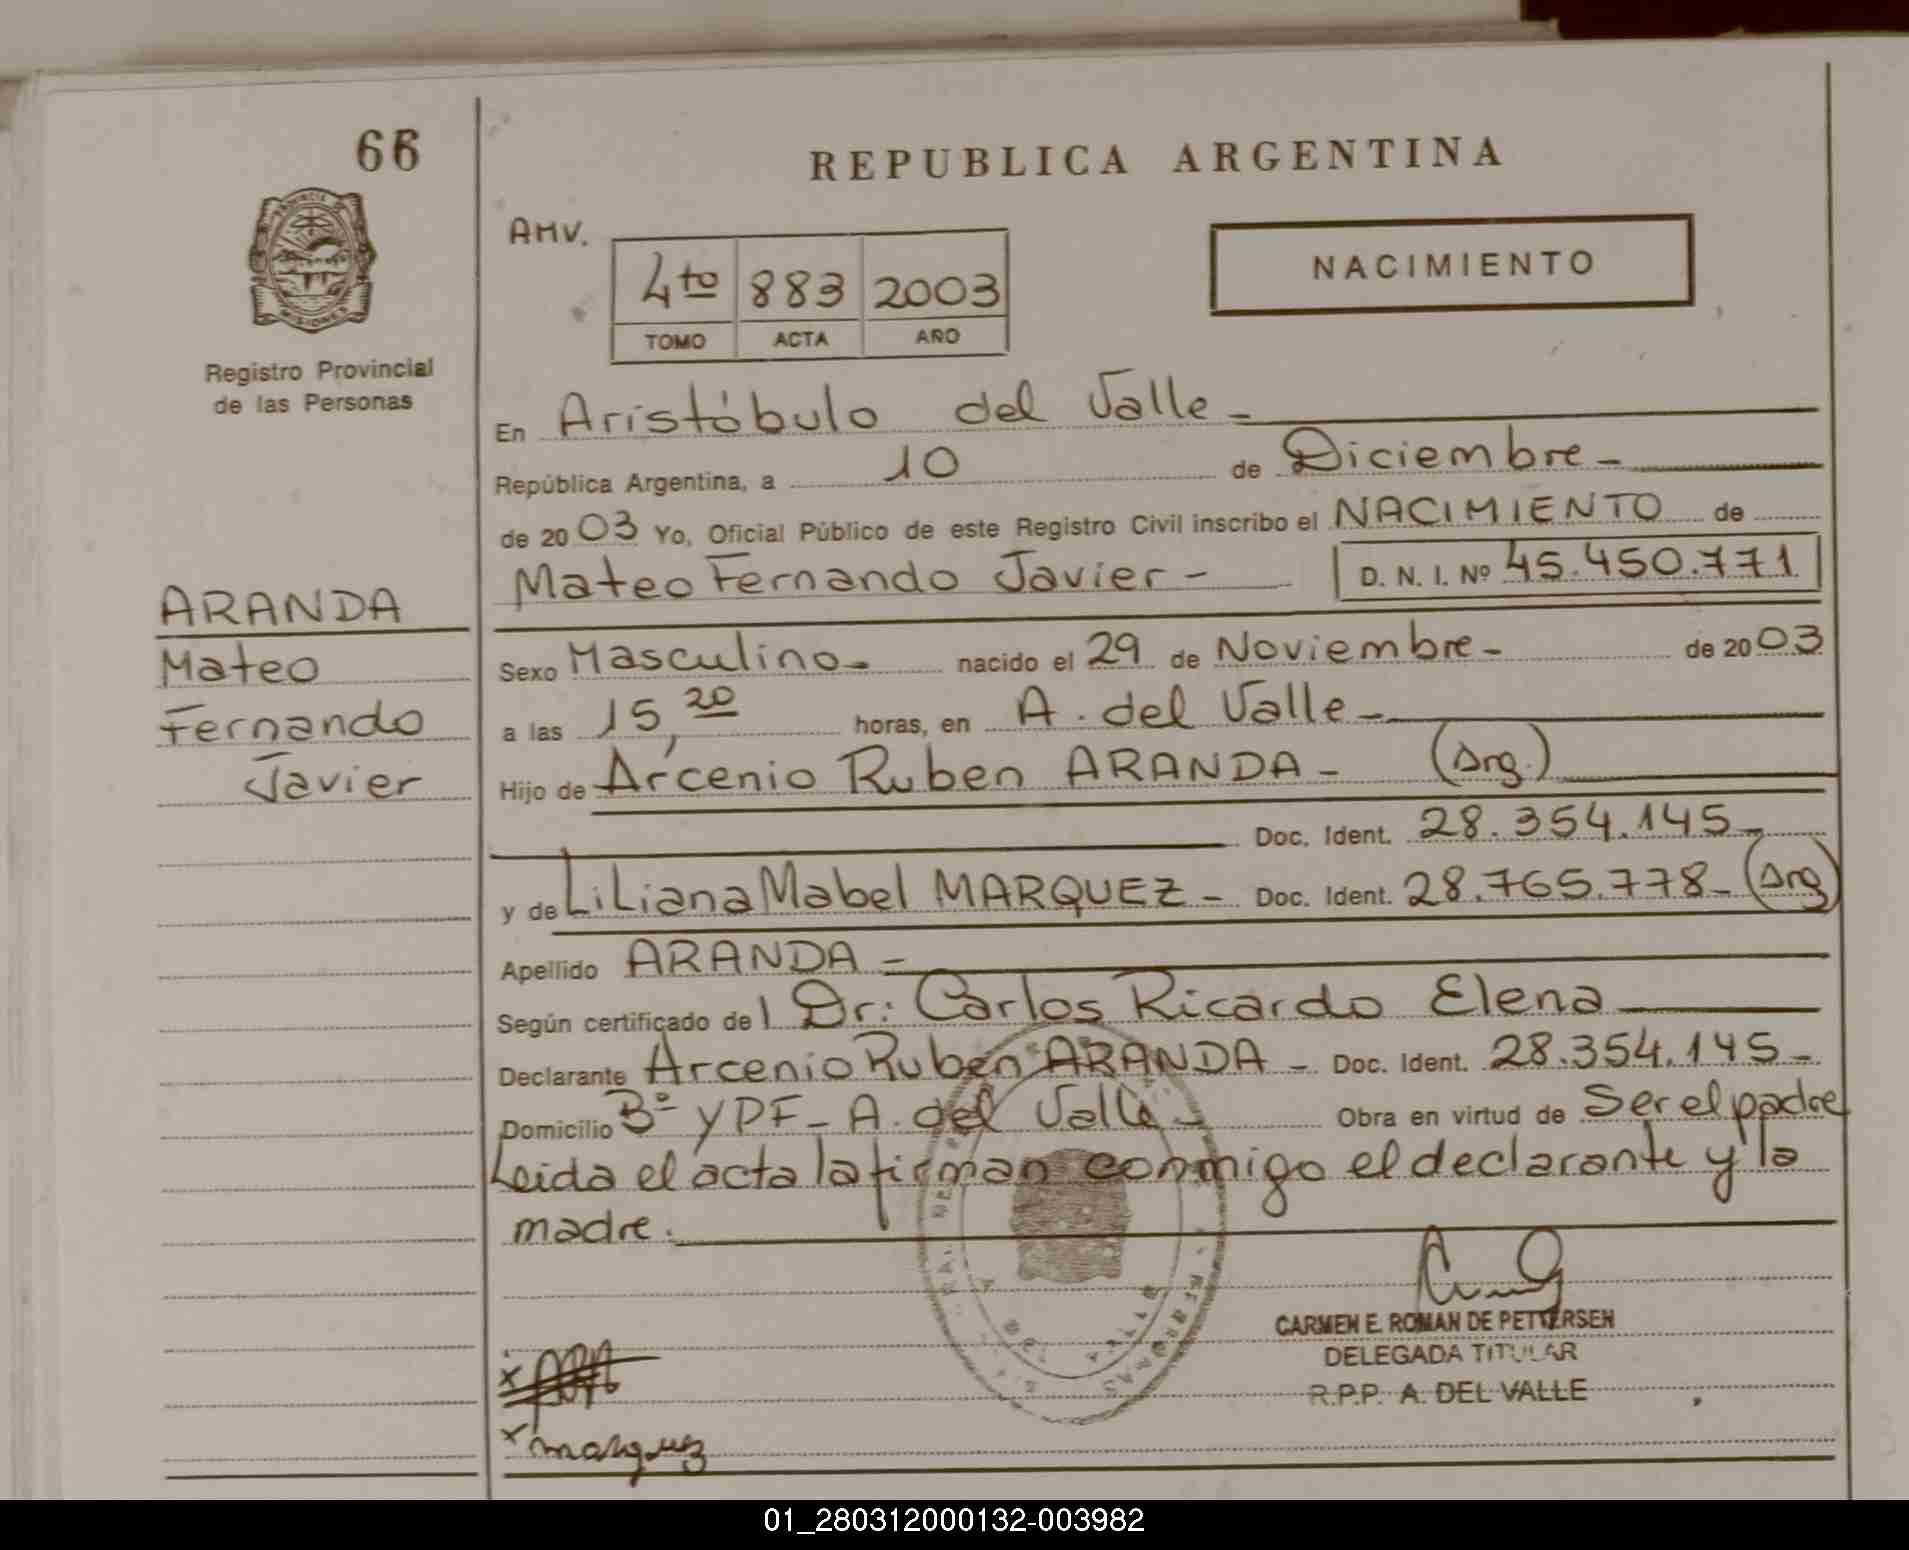 66
REPUBLICA ARGENTINA
AMV.
4to 883 2003
TOMO ACTA AÑO
NACIMIENTO
PROVINCIA DE
MISIONES
Registro Provincial
de las Personas
En Aristóbulo del Valle -
República Argentina, a 10 de Diciembre -
de 20 03 Yo, Oficial Público de este Registro Civil inscribo el NACIMIENTO de
Mateo Fernando Javier - D. N. I. Nº 45.450.771
ARANDA
Mateo
Fernando
Javier
Sexo Masculino - nacido el 29 de Noviembre - de 20 03
a las 15,20 horas, en A. del Valle -
Hijo de Arcenio Ruben ARANDA - (Arg.)
Doc. Ident. 28.354.145 -
y de Liliana Mabel MARQUEZ - Doc. Ident. 28.765.778 - (Arg)
Apellido ARANDA -
Según certificado del Dr: Carlos Ricardo Elena
Declarante Arcenio Ruben ARANDA - Doc. Ident. 28.354.145 -
Domicilio Bº YPF - A. del Valle - Obra en virtud de Ser el padre
Leida el acta la firman conmigo el declarante y la
madre.
CARMEN E. ROMAN DE PETTERSEN
DELEGADA TITULAR
R.P.P. A. DEL VALLE
x
x marquez
01_280312000132-003982